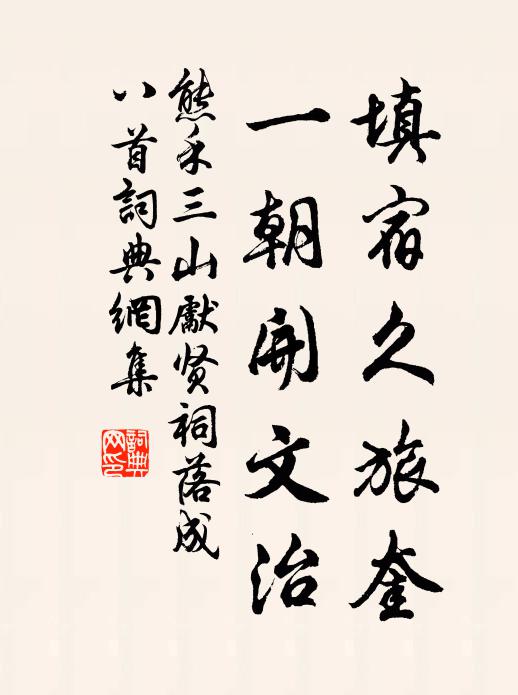 填宿久旅奎
一朝开文治
熊禾三山獻贤祠落成
八首詞典網集
詞典网印